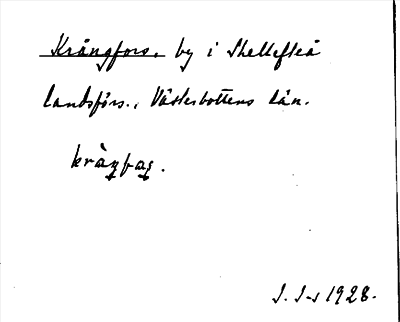 Krångfors, by i Skellefteå
landsförs., Västerbottens län.
J. J-s 1928.